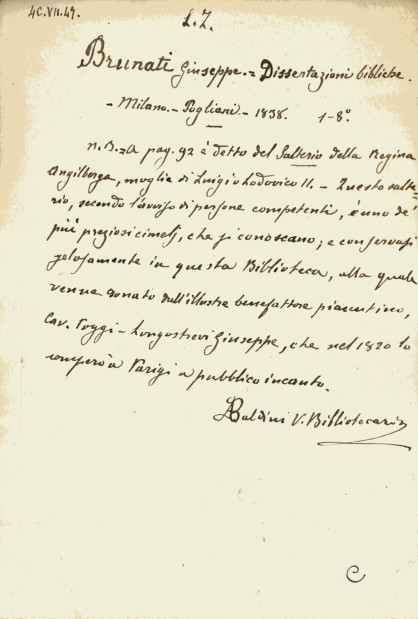 4C.VII.47.
L.Z.
Brunati Giuseppe. = Dissertazioni bibliche.
- Milano. - Pogliani - 1838. 1-8°.
N.B. = A pag. 92 è detto del Salterio della Regina
Angilberga, moglie di Luigi o Lodovico II. - Questo salte=
rio, secondo l'avviso di persone competenti, è uno de'
più preziosi cimelj, che si conoscano; e conservasi
gelosamente in questa Biblioteca, alla quale
venne donato dall'illustre benefattore piacentino,
Cav. Poggi - Longostrevi Giuseppe, che nel 1820 lo
comperò a Parigi a pubblico incanto.
ABaldini V. Bibliotecario
C